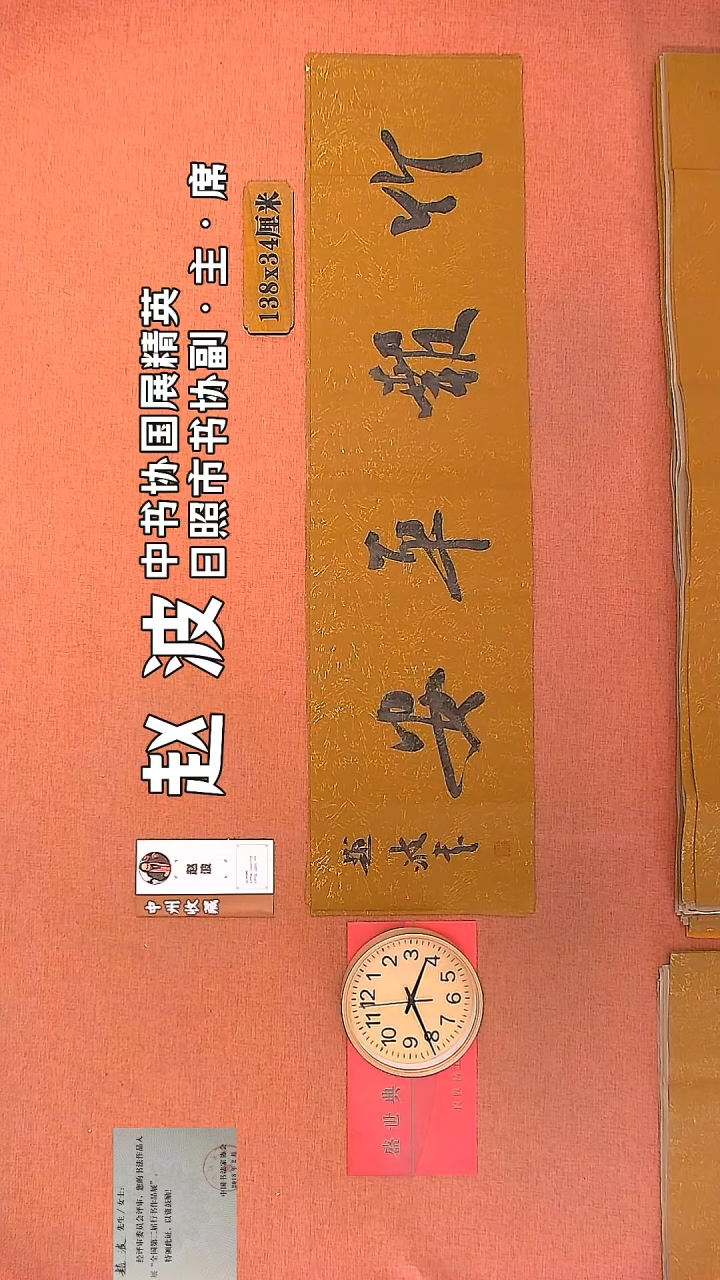 赵波
中书协国展精英
日照市书协副·主·席
138x34厘米
竹報平安
趙波书
中州收藏
赵波
12
1
2
3
4
5
6
7
8
9
10
11
盛世典
赵波 先生/女士:
经评审委员会评审,您的书法作品入
“全国第二届行书作品展”。
特颁此证,以资鼓励!
中国书法家协会